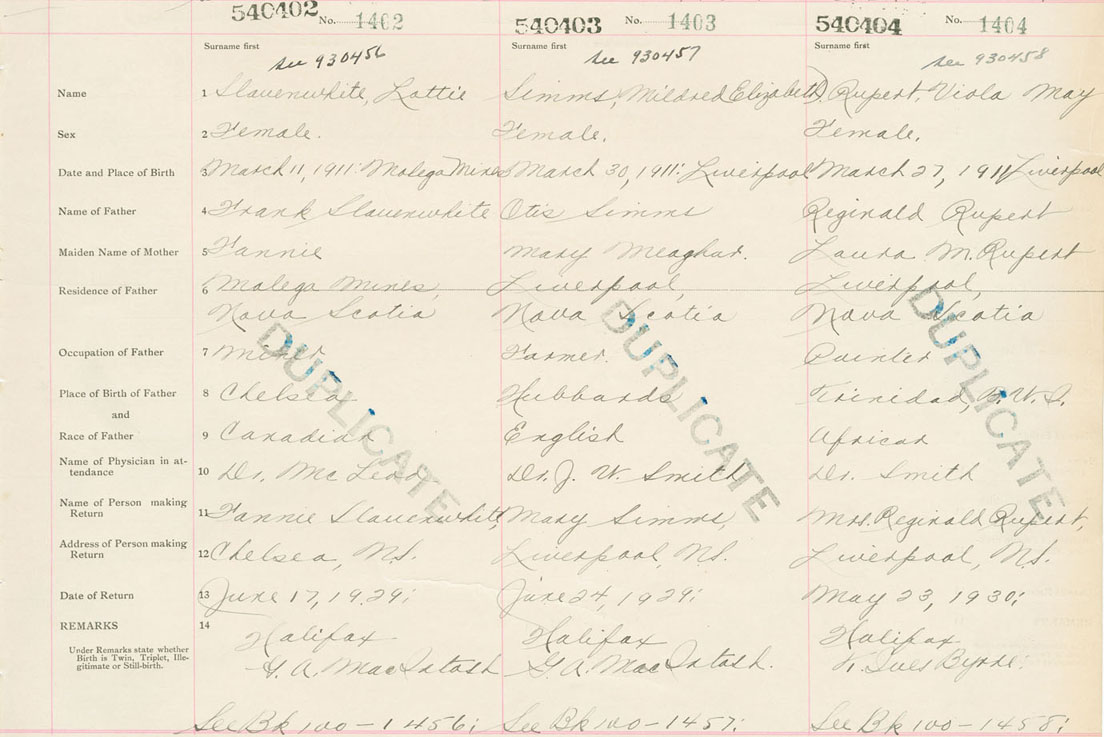 540402 No. 1402 540403 No. 1403 540404 No. 1404
Surname first Surname first Surname first
see 930456 see 930457 see 930458
Name 1 Slauenwhite, Lottie Simms, Mildred Elizabeth Rupert, Viola May
Sex 2 Female. Female. Female.
Date and Place of Birth 3 March 11, 1911: Molega Mines March 30, 1911: Liverpool March 27, 1911 Liverpool
Name of Father 4 Frank Slauenwhite Otis Simms Reginald Rupert
Maiden Name of Mother 5 Fannie Mary Meaghar. Laura M. Rupert
Residence of Father 6 Molega Mines, Liverpool, Liverpool,
Nova Scotia Nova Scotia Nova Scotia
Occupation of Father 7 Miner Farmer. Painter
Place of Birth of Father 8 Chelsea Hubbards Trinidad, B.W.I.
and
Race of Father 9 Canadian English African
Name of Physician in at-
tendance 10 Dr. McLeod Dr. J. W. Smith Dr. Smith
Name of Person making
Return 11 Fannie Slauenwhite, Mary Simms, Mrs. Reginald Rupert,
Address of Person making
Return 12 Chelsea, N.S. Liverpool, N.S. Liverpool, N.S.
Date of Return 13 June 17, 1929: June 24, 1929: May 23, 1930:
REMARKS 14
Halifax Halifax Halifax
Under Remarks state whether
Birth is Twin, Triplet, Ille-
gitimate or Still-birth.
G. A. MacIntosh G. A. MacIntosh. Ives Byrne:
See Bk 100-1456: See Bk 100-1457: See Bk 100-1458:
DUPLICATE DUPLICATE DUPLICATE